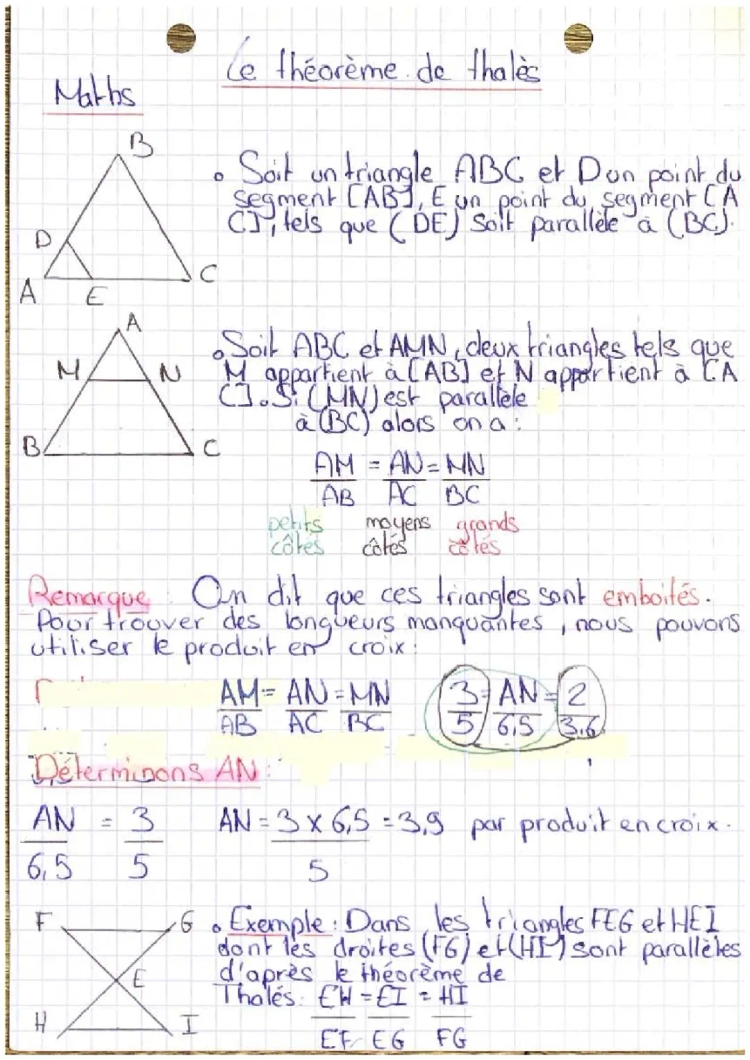 Le théorème de thalès
Maths
B
D
A E C
• Soit un triangle ABC et D un point du
segment [AB], E un point du segment [A
C], tels que (DE) soit parallèle à (BC).
A
M N
B C
• Soit ABC et AMN, deux triangles tels que
M appartient à [AB] et N appartient à [A
C]. Si (MN) est parallèle
à (BC) alors on a :
AM = AN = MN
AB AC BC
petits moyens grands
côtés côtés côtés
Remarque : On dit que ces triangles sont emboités.
Pour trouver des longueurs manquantes, nous pouvons
utiliser le produit en croix :
AM = AN = MN 3 = AN = 2
AB AC BC 5 6,5 3,6
Déterminons AN :
AN = 3 AN = 3 x 6,5 = 3,9 par produit en croix.
6,5 5 5
F G
E
H I
• Exemple : Dans les triangles FEG et HEI
dont les droites (FG) et (HI) sont parallèles
d'après le théorème de
Thalés : EH = EI = HI
EF EG FG